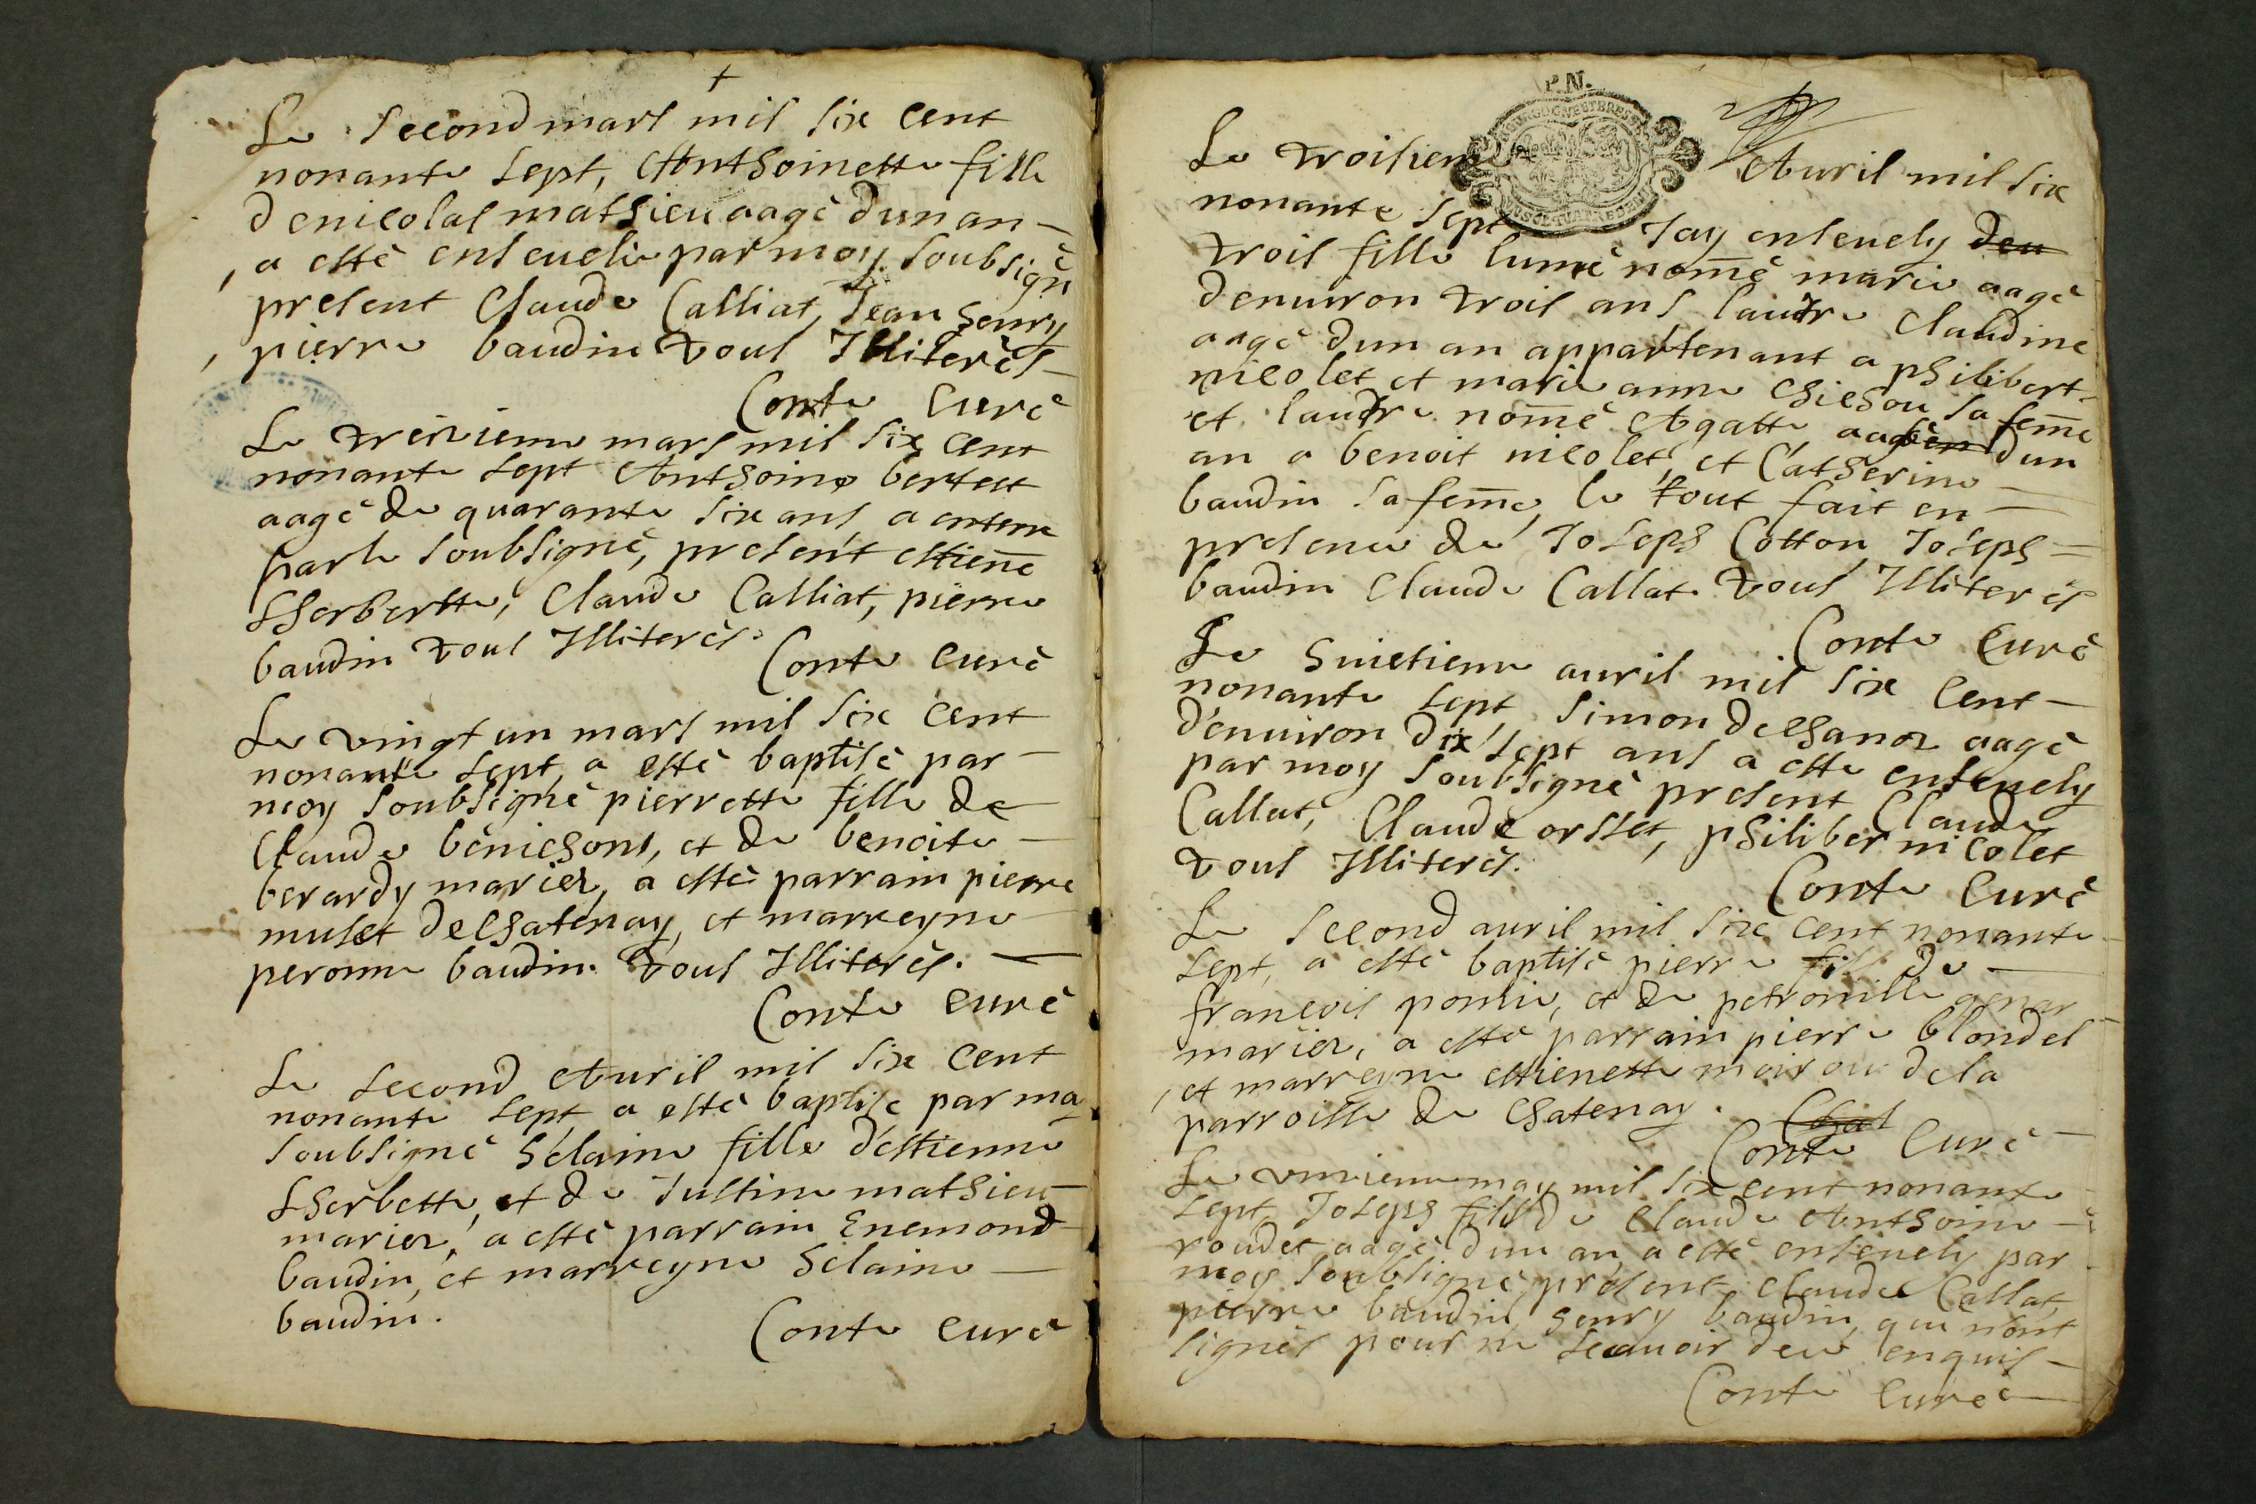 +
Le second mars mil six cent
nonante sept, Anthoinette fille
de nicolas mathieu aagé d'un an –
a esté ensevelie par moy soubsigné
present Claude Calliat, Jean henry
pierre baudin tous Illiterés –
Conte curé
Le treizieme mars mil six cent
nonante sept Anthoine
aagé de quarante six ans, a
par le soubsigné, present estiene
Lherbette, Claude Calliat, pierre
baudin tous Illiterés.
Conte curé
Le vingt un mars mil six cent
nonante sept, a esté baptisé par –
moy soubsigné pierrette fille de
Claude bénichons, et de benoite –
berardy mariez, a esté parrain pierre
muset de chatenay, et marreyne
peronne baudin. tous Illiterés. –
Conte curé
Le second Avril mil six cent
nonante sept, a esté baptisé par moy
soubsigné hélaine fille d'estienne
Lherbette, et de Justine mathieu –
mariez, a esté parrain Enemond
baudin, et marreyne hélaine –
baudin.
Conte curé
P.N.
Le troisieme Avril mil six
nonante sept Jay ensevely deu
trois fille lune nomé marie aagé
denviron trois ans lautre Claudine
aagé dun an appartenant a philibert –
nicolet et marie anne chichou sa feme
et lautre nomé Agatte, dun
an a benoit nicolet, et Catherine –
baudin sa feme, le tout fait en –
presence de Joseph Cotton Joseph =
baudin Claude Callat. tous Illiterés
Conte curé
Le huictieme avril mil six cent –
nonante sept, Simon aagé
d'environ dix sept ans a esté ensevely
par moy soubsigné present Claude
Callat, Claude orsset, philiber nicolet
tous Illiterés.
Conte curé
Le second avril mil six cent nonante
sept, a esté baptisé pierre fils de –
francois, et de petronille
mariez, a esté parrain pierre blondel
et marreyne estienette de la
parroisse de chatenay.
Conte curé
Le unzieme may mil six cent nonante
sept, Joseph fils de Claude Anthoine –
roudet aagé dun an, a esté ensevely par
moy soubsigné, present Claude Callat,
pierre baudin henry baudin, qui nont
signés pour ne scavoir de ce enquis –
Conte curé